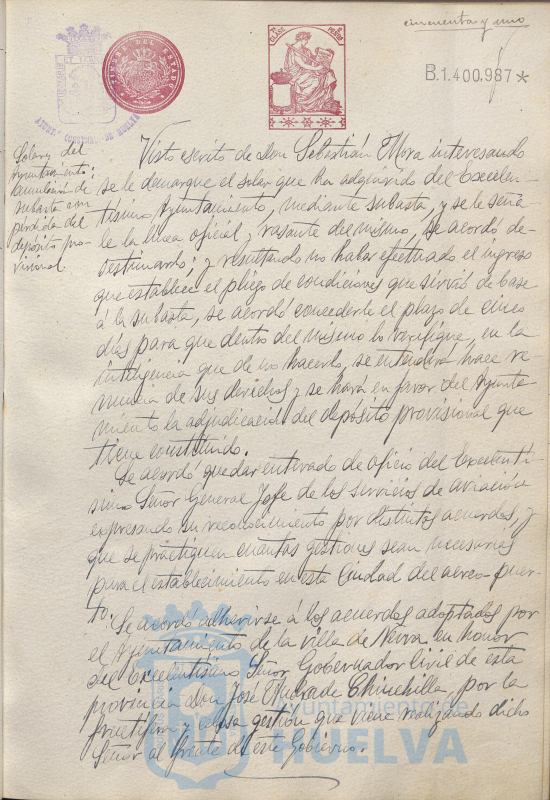 cincuenta y uno
B.1.400.987*
CLASE
TIMBRE DEL ESTADO
Solares del
Ayuntamiento;
anulación de
subasta con
pérdida del
depósito pro-
visional.
Visto escrito de Don Sebastián Mora interesando
se le demarque el solar que ha adquirido del Excelen-
tísimo Ayuntamiento, mediante subasta, y se le seña-
le la línea oficial y rasante del mismo, se acordó de-
sestimarlo; y resultando no haber efectuado el ingreso
que establece el pliego de condiciones que sirvió de base
á la subasta, se acordó concederle el plazo de cinco
días para que dentro del mismo lo verifique, en la
inteligencia que de no hacerlo, se entenderá hace re-
nuncia de sus derechos y se hará en favor del Ayunta-
miento la adjudicación del depósito provisional que
tiene constituido.
Se acordó quedar enterado de oficio del Excelentí-
simo Señor General Jefe de los servicios de aviación
expresando su reconocimiento por distintos acuerdos, y
que se practiquen cuantas gestiones sean necesarias
para el establecimiento en esta Ciudad del aereo-puer-
to.
Se acordó adherirse á los acuerdos adoptados por
el Ayuntamiento de la villa de Nerva en honor
del Excelentísimo Señor Gobernador Civil de esta
provincia Don José Andrade Chinchilla, por la
y celosa gestión que viene realizando dicho
Señor al frente de este Gobierno.
Ayuntamiento de
HUELVA